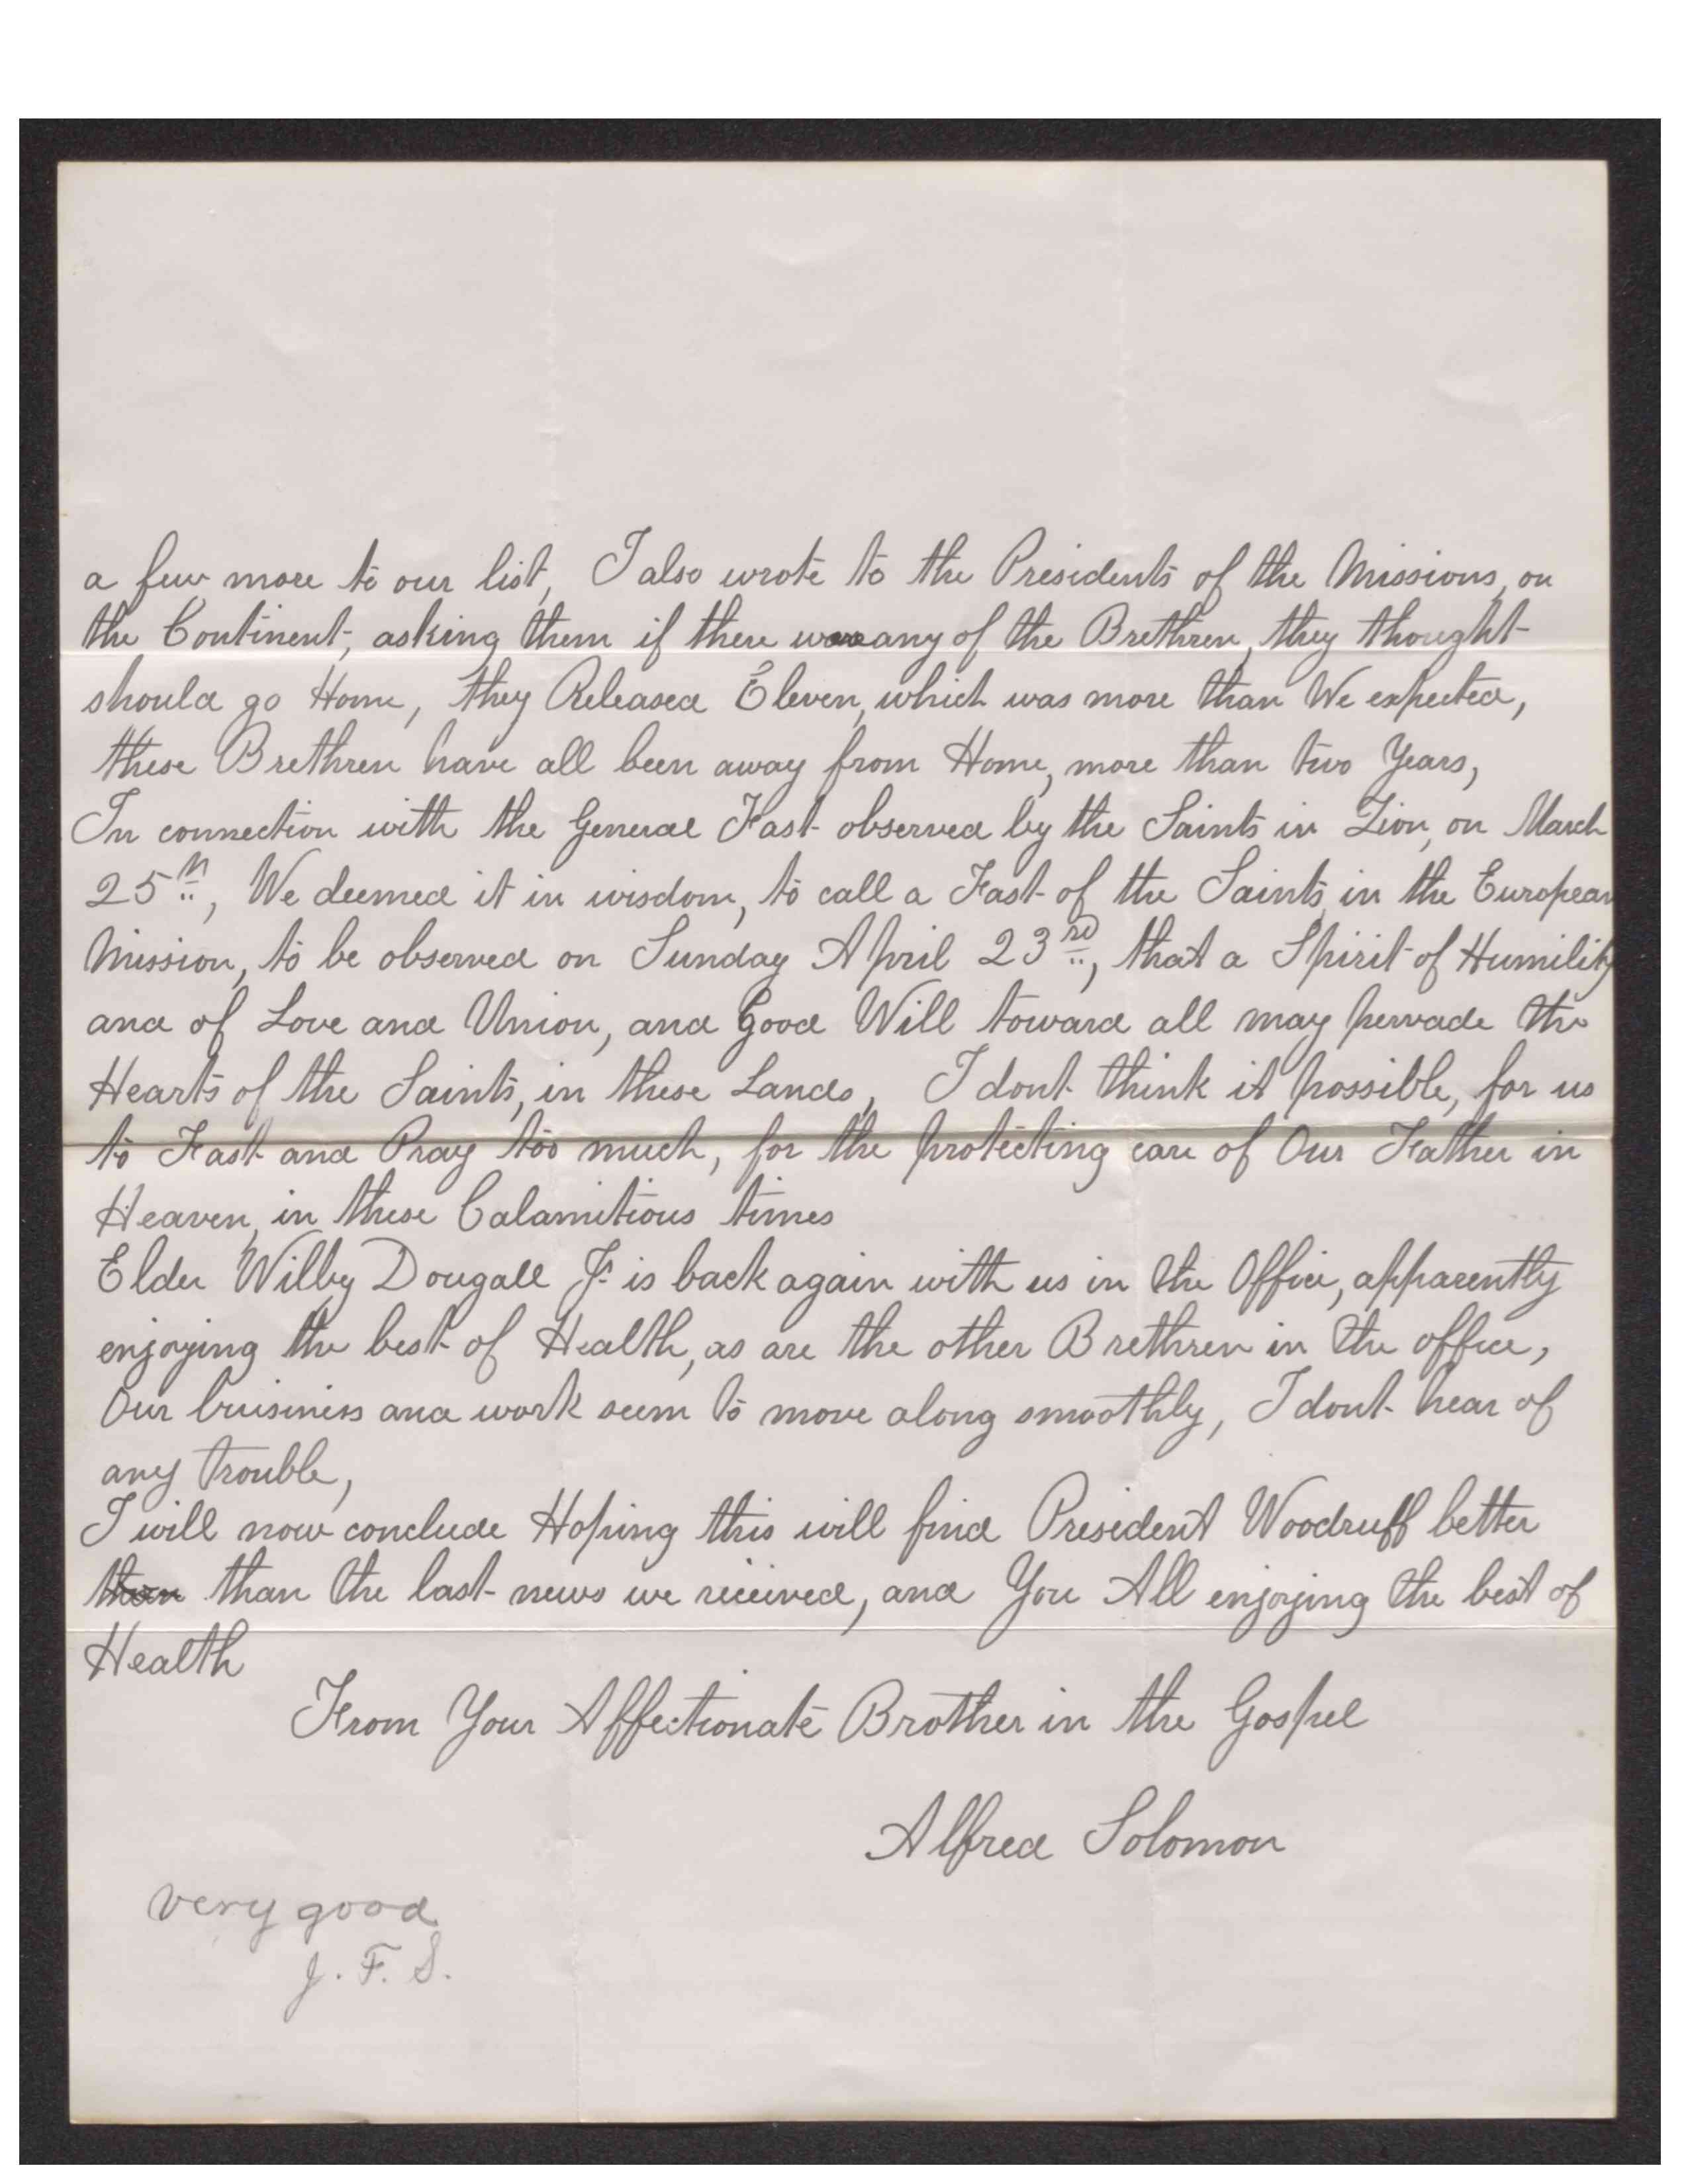 a few more to our list, I also wrote to the Presidents of the Missions, on
the Continent, asking them if there was any of the Brethren, they thought
should go Home, they Released Eleven, which was more than We expected,
these Brethren have all been away from Home, more than two Years,
In connection with the General Fast observed by the Saints in Zion, on March
25th, We deemed it in wisdom, to call a Fast of the Saints, in the European
Mission, to be observed on Sunday April 23rd, that a Spirit of Humility
and of Love and Union, and Good Will toward all may pervade the
Hearts of the Saints, in these Lands, I dont think it possible, for us
to Fast and Pray too much, for the protecting care of Our Father in
Heaven, in these Calamitious times
Elder Willby Dougall Jr is back again with us in the Office, apparently
enjoying the best of Health, as are the other Brethren in the office,
Our buisiness and work seem to move along smoothly, I dont hear of
any trouble,
I will now conclude Hoping this will find President Woodruff better
than the last news we received, and You All enjoying the best of
Health
From Your Affectionate Brother in the Gospel
Alfred Solomon
very good
J. F. S.